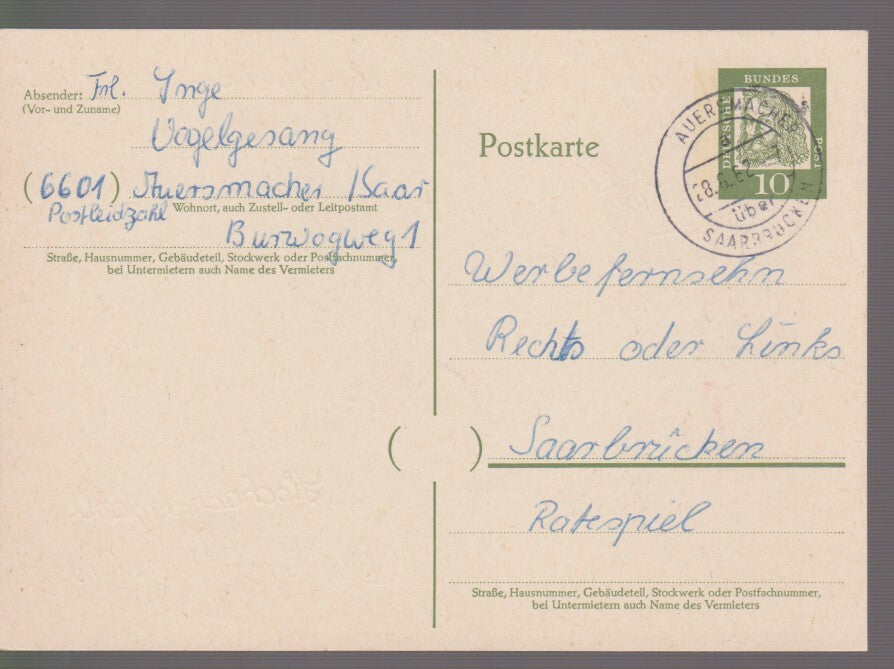 Absender: Frl. Inge
(Vor- und Zuname)
Vogelgesang
(6601) Auersmacher /Saar
Postleidzahl Wohnort, auch Zustell- oder Leitpostamt
Burwogweg 1
Straße, Hausnummer, Gebäudeteil, Stockwerk oder Postfachnummer,
bei Untermietern auch Name des Vermieters
Postkarte
DEUTSCHE
BUNDES
POST
10
AUERSMACHER
28.6.62
über
SAARBRÜCKEN
Werbefernsehn
Rechts oder Links
( ) Saarbrücken
Ratespiel
Straße, Hausnummer, Gebäudeteil, Stockwerk oder Postfachnummer,
bei Untermietern auch Name des Vermieters